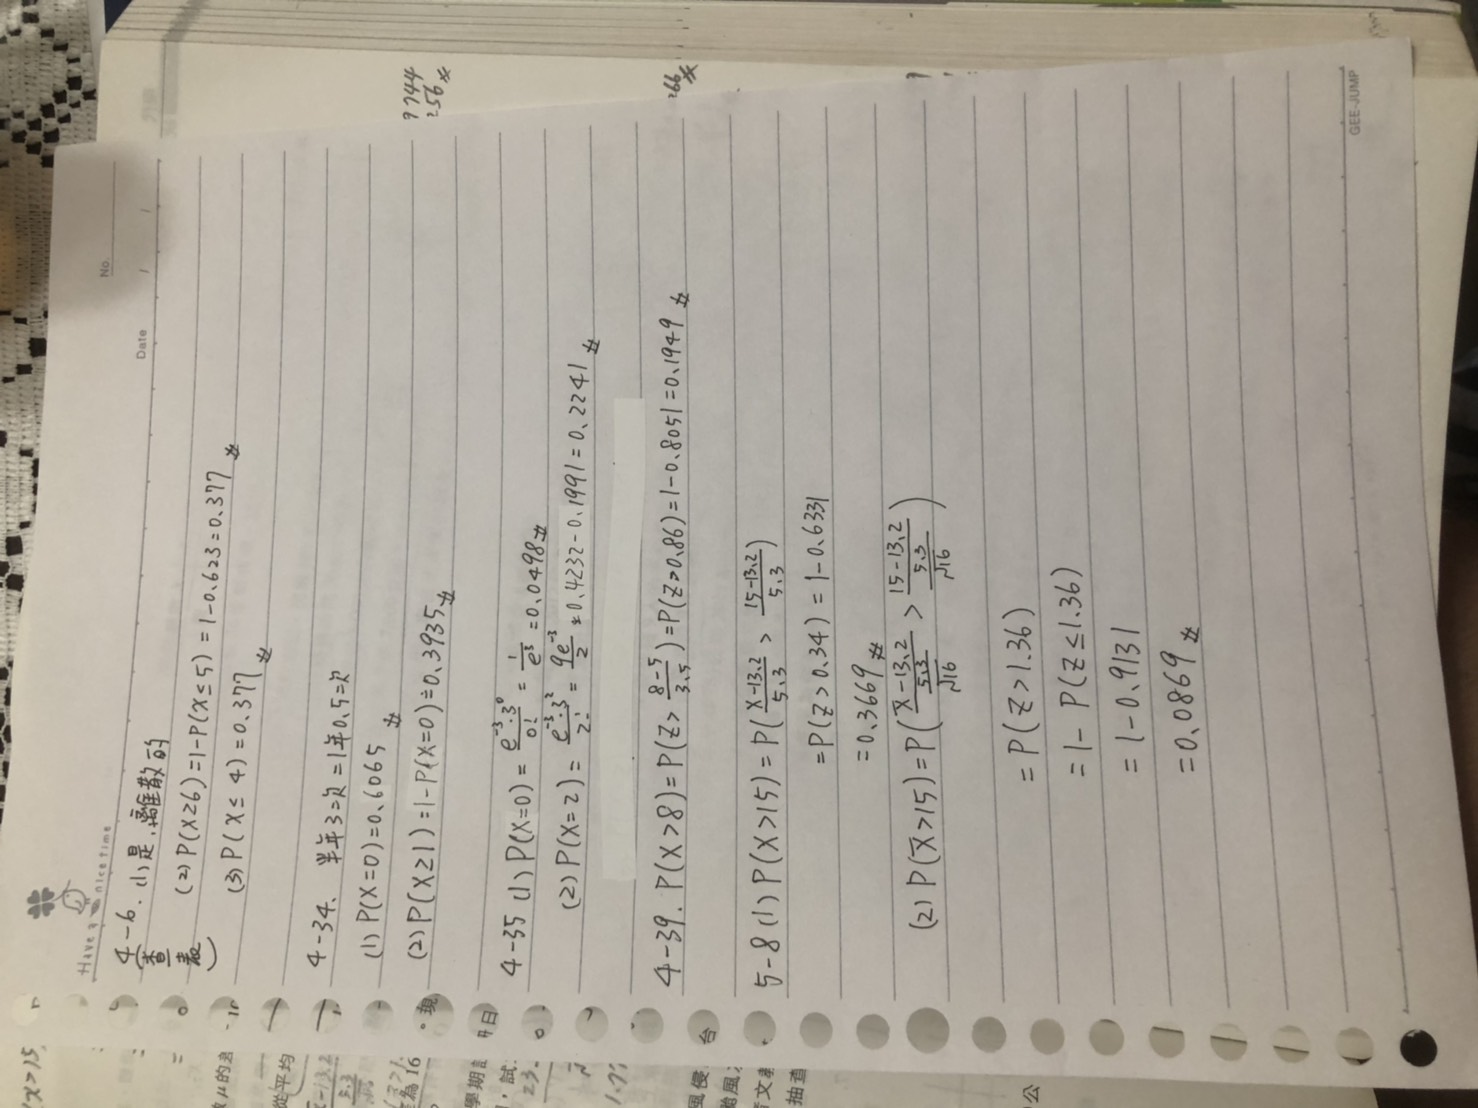 Have a nice time
No.
Date / /
4-6. (1)是,離散的
(查表)
(2)P(X≥6)=1-P(X≤5)=1-0.623=0.377
(3)P(X≤4)=0.377
4-34.
(1)P(X=0)=0.6065
(2)P(X≥1)=1-P(X=0)=0.3935
4-35 (1)P(X=0)=\frac{e^{-3}·3^0}{0!}=\frac{1}{e^3}=0.0498
(2)P(X=2)=\frac{e^{-3}·3^2}{2!}=\frac{9e^{-3}}{2}=0.4232-0.1991=0.2241
4-39. P(X>8)=P(Z>\frac{8-5}{3.5})=P(Z>0.86)=1-0.8051=0.1949
5-8 (1)P(X>15)=P(\frac{X-13.2}{5.3}>\frac{15-13.2}{5.3})
=P(Z>0.34)=1-0.6331
=0.3669
(2)P(X̄>15)=P(\frac{X̄-13.2}{\frac{5.3}{√16}}>\frac{15-13.2}{\frac{5.3}{√16}})
=P(Z>1.36)
=1-P(Z≤1.36)
=1-0.9131
=0.0869
GEE-JUMP